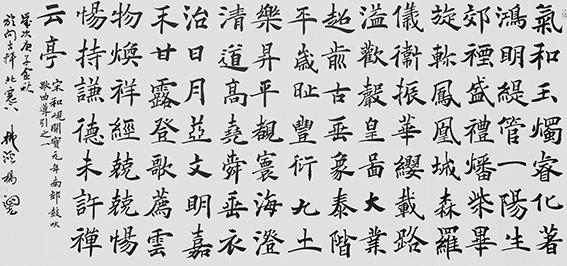 氣和玉燭睿化著
鴻明緹管一陽生
郊禋盛禮燔柴畢
旋軫鳳凰城森羅
儀衛振華纓載路
溢歡聲皇圖大業
超歬古垂象泰階
平歲阯豐衍九土
樂昇平覩寰海澄
清道高堯舜垂衣
治日月並文明嘉
禾甘露登歌薦雲
物煥祥經兢兢惕
惕持謙德未許禪
云亭
宋和峴開寶元年南郊鼓吹
歌曲導引之
歲次庚子金秋
於向古軒北窗